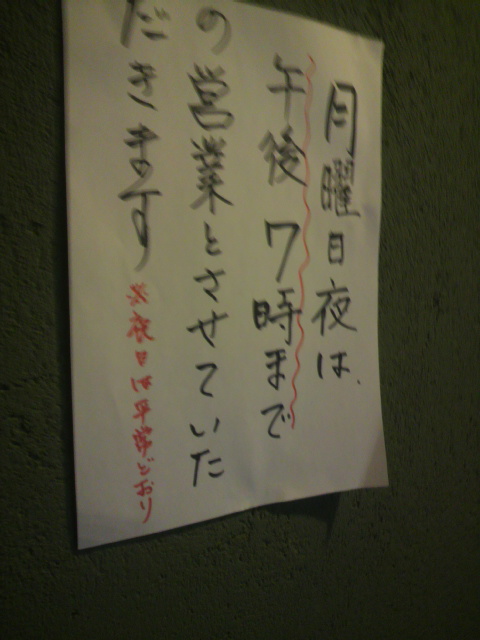 月曜日夜は、
午後7時まで
の営業とさせていた
だきます
※夜日は平常どおり